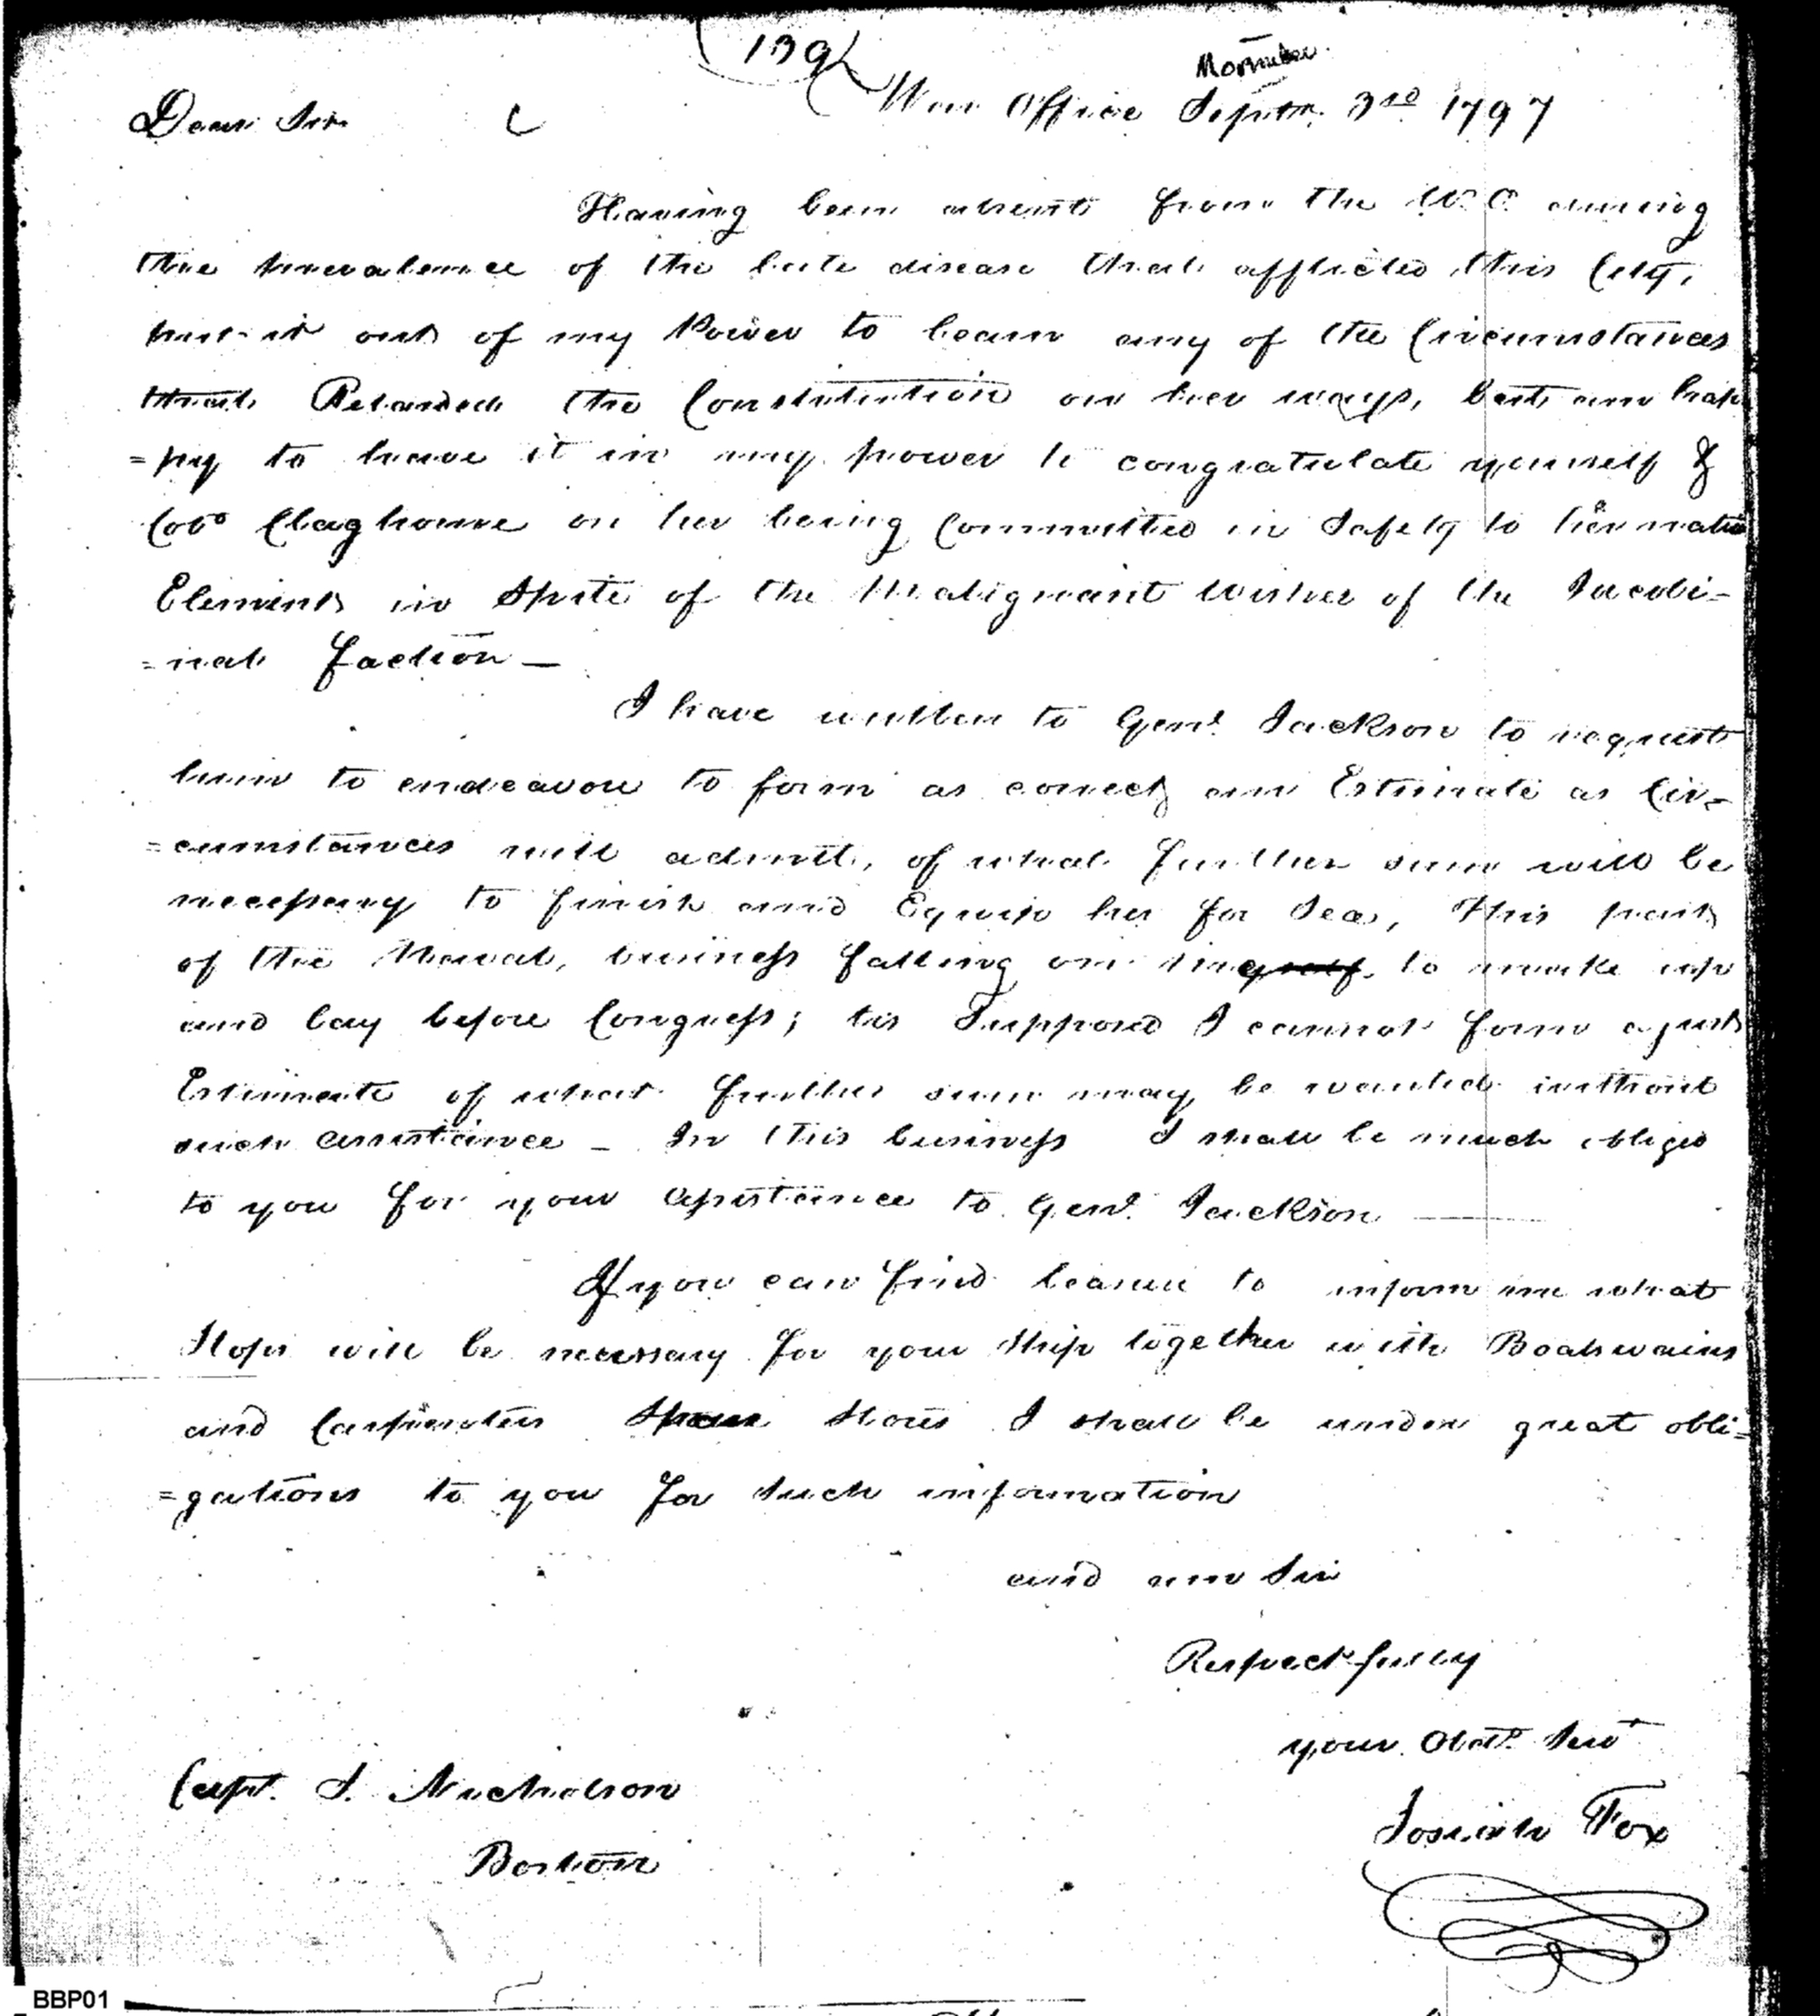 139
November
Dear Sir War Office Septr. 3rd 1797
Having been absent from the W. O. during
the prevalence of the late disease that afflicted this City,
put it out of my Power to learn any of the Circumstances
that Retarded the Constitution on her ways, but am hap
=py to have it in my power to congratulate yourself &
Colo Claghorne on her being Committed in Safety to her native
Element in Spite of the Malignant wishes of the Jacobi-
=nal faction —
I have written to Genl. Jackson to request
him to endeavour to form as correct an Estimate as Cir-
=cumstances will admit, of what further sum will be
necessary to finish and Equip her for Sea, This part
of the Naval, business falling on myself, to make up
and lay before Congress; tis Supposed I cannot form a just
Estimate of what further sum may be wanted without
such assistance — In this business I shall be much obliged
to you for your assistance to Genl. Jackson
If you can find leasure to inform me what
Slops will be necessary for your Ship together with Boatswains
and Carpenters Stores I shall be under great obli=
=gations to you for such information
and am Sir
Respectfully
your Obedt. Servt
Capt. S. Nicholson
Josiah Fox
Boston
BBP01